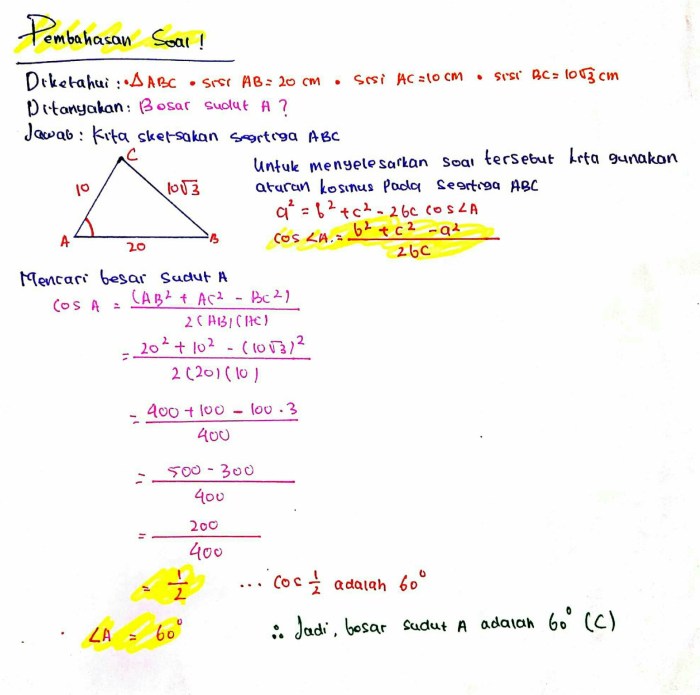 Pembahasan Soal !
Diketahui : • △ ABC • sisi AB = 20 cm • sisi AC = 10 cm • sisi BC = 10√3 cm
Ditanyakan : Besar sudut A ?
Jawab : Kita sketsakan segitiga ABC
C
10
10√3
A
20
B
Untuk menyelesaikan soal tersebut kita gunakan
aturan kosinus pada segitiga ABC
a² = b² + c² - 2bc cos∠A
cos ∠A = b² + c² - a² / 2bc
Mencari besar sudut A
cos A = (AB² + AC² - BC²) / 2(AB)(AC)
= 20² + 10² - (10√3)² / 2(20)(10)
= 400 + 100 - 100 . 3 / 400
= 500 - 300 / 400
= 200 / 400
= 1/2 ... cos 1/2 adalah 60°
∠A = 60° ∴ Jadi, besar sudut A adalah 60° (C)